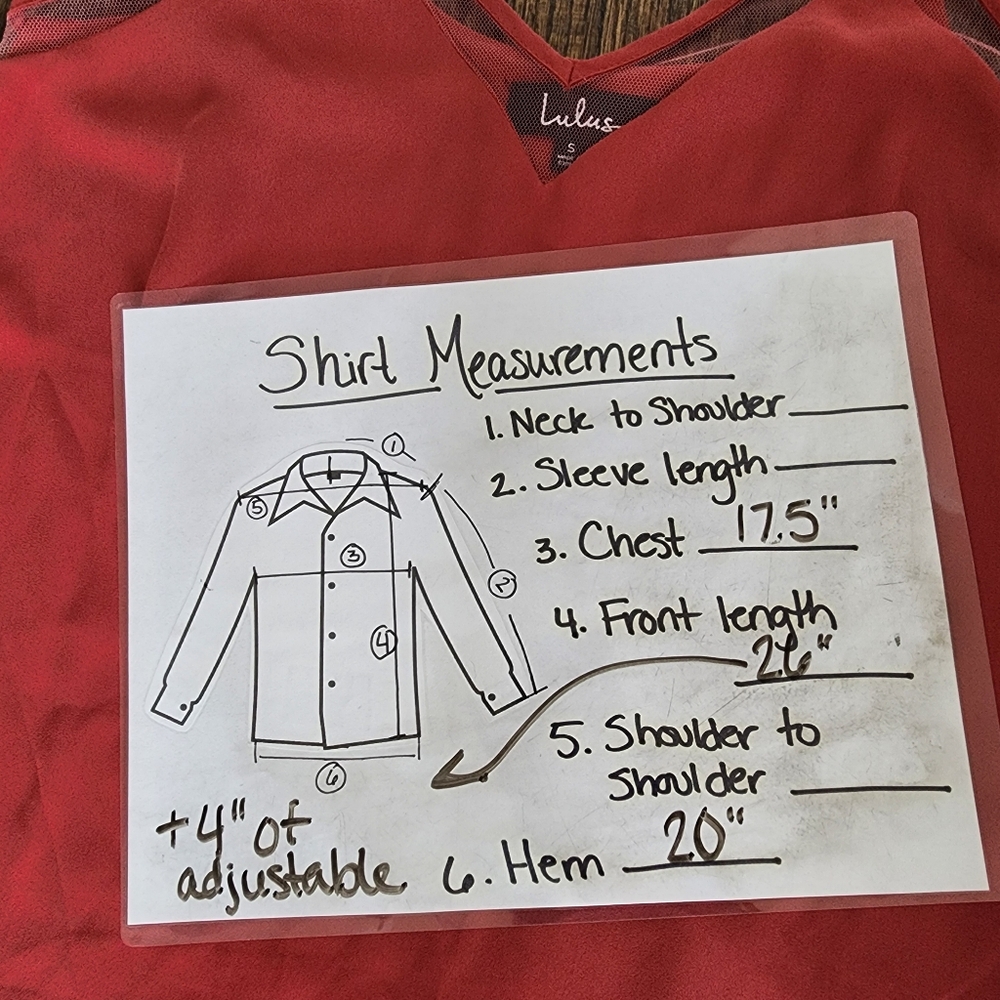 Lulus
S
Shirt Measurements
1. Neck to Shoulder
2. Sleeve length
3. Chest 17.5"
4. Front length
26"
5. Shoulder to
Shoulder
6. Hem 20"
+4" of
adjustable
1
5
3
2
4
6